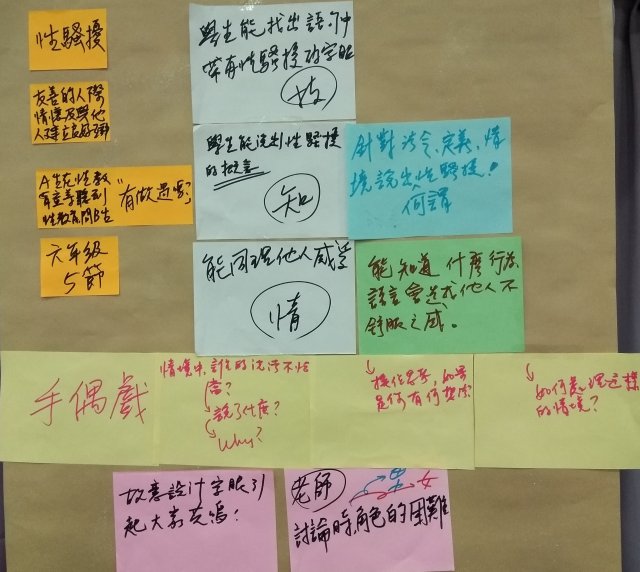 性騷擾
友善的人際
情懷及與他
人建立良好互動
A生在性教
育宣導聽到
性教育問B生
"有做過嗎?"
六年級
5節
學生能找出語句中
帶有性騷擾的字眼
技
學生能說出性騷擾
的概念
知
針對法令、定義、情
境說出性騷擾!
何謂
能同理他人感受
情
能知道什麼行為
語言會造成他人不
舒服之感。
手偶戲
情境中,誰的說法不恰
當?
說了什麼?
Why?
換位思考,如果
是你有何想法?
如何處理這樣
的情境?
故意設計字眼引
起大家共鳴!
老師
男
女
討論時角色的困難